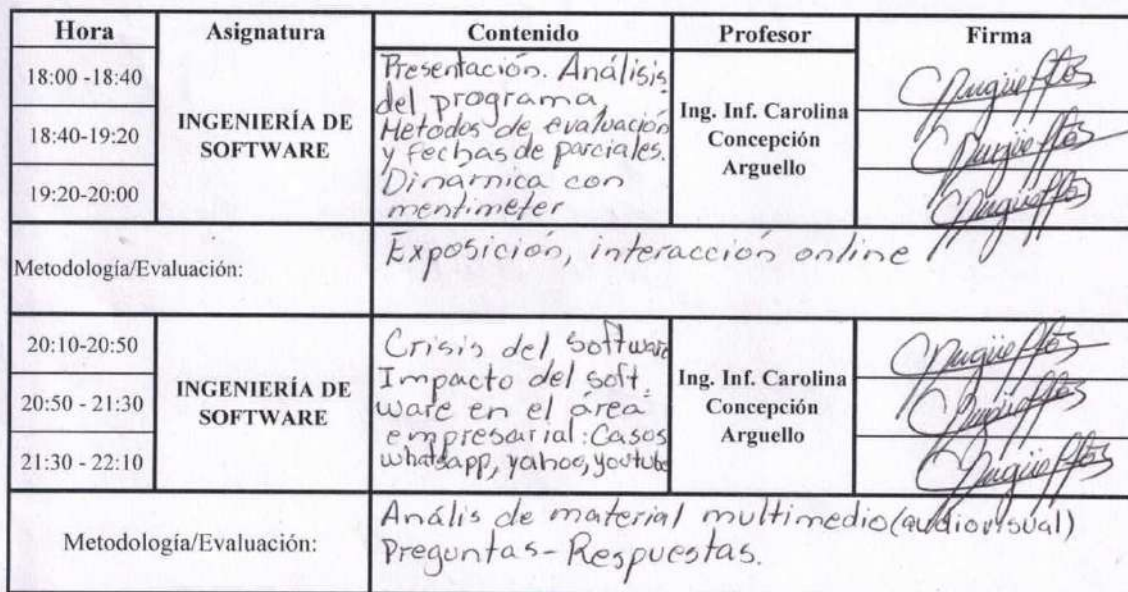 Hora Asignatura Contenido Profesor Firma
18:00 -18:40
18:40-19:20
19:20-20:00
INGENIERÍA DE
SOFTWARE
Presentación. Análisis
del programa,
Metodos de evaluación
y fechas de parciales.
Dinamica con
mentimeter
Ing. Inf. Carolina
Concepción
Arguello
Metodología/Evaluación:
Exposición, interacción online
20:10-20:50
20:50 - 21:30
21:30 - 22:10
INGENIERÍA DE
SOFTWARE
Crisis del Software
Impacto del soft.
ware en el área
empresarial: Casos
whatsapp, yahoo, youtube
Ing. Inf. Carolina
Concepción
Arguello
Metodología/Evaluación:
Anális de material multimedio (audiovisual)
Preguntas - Respuestas.